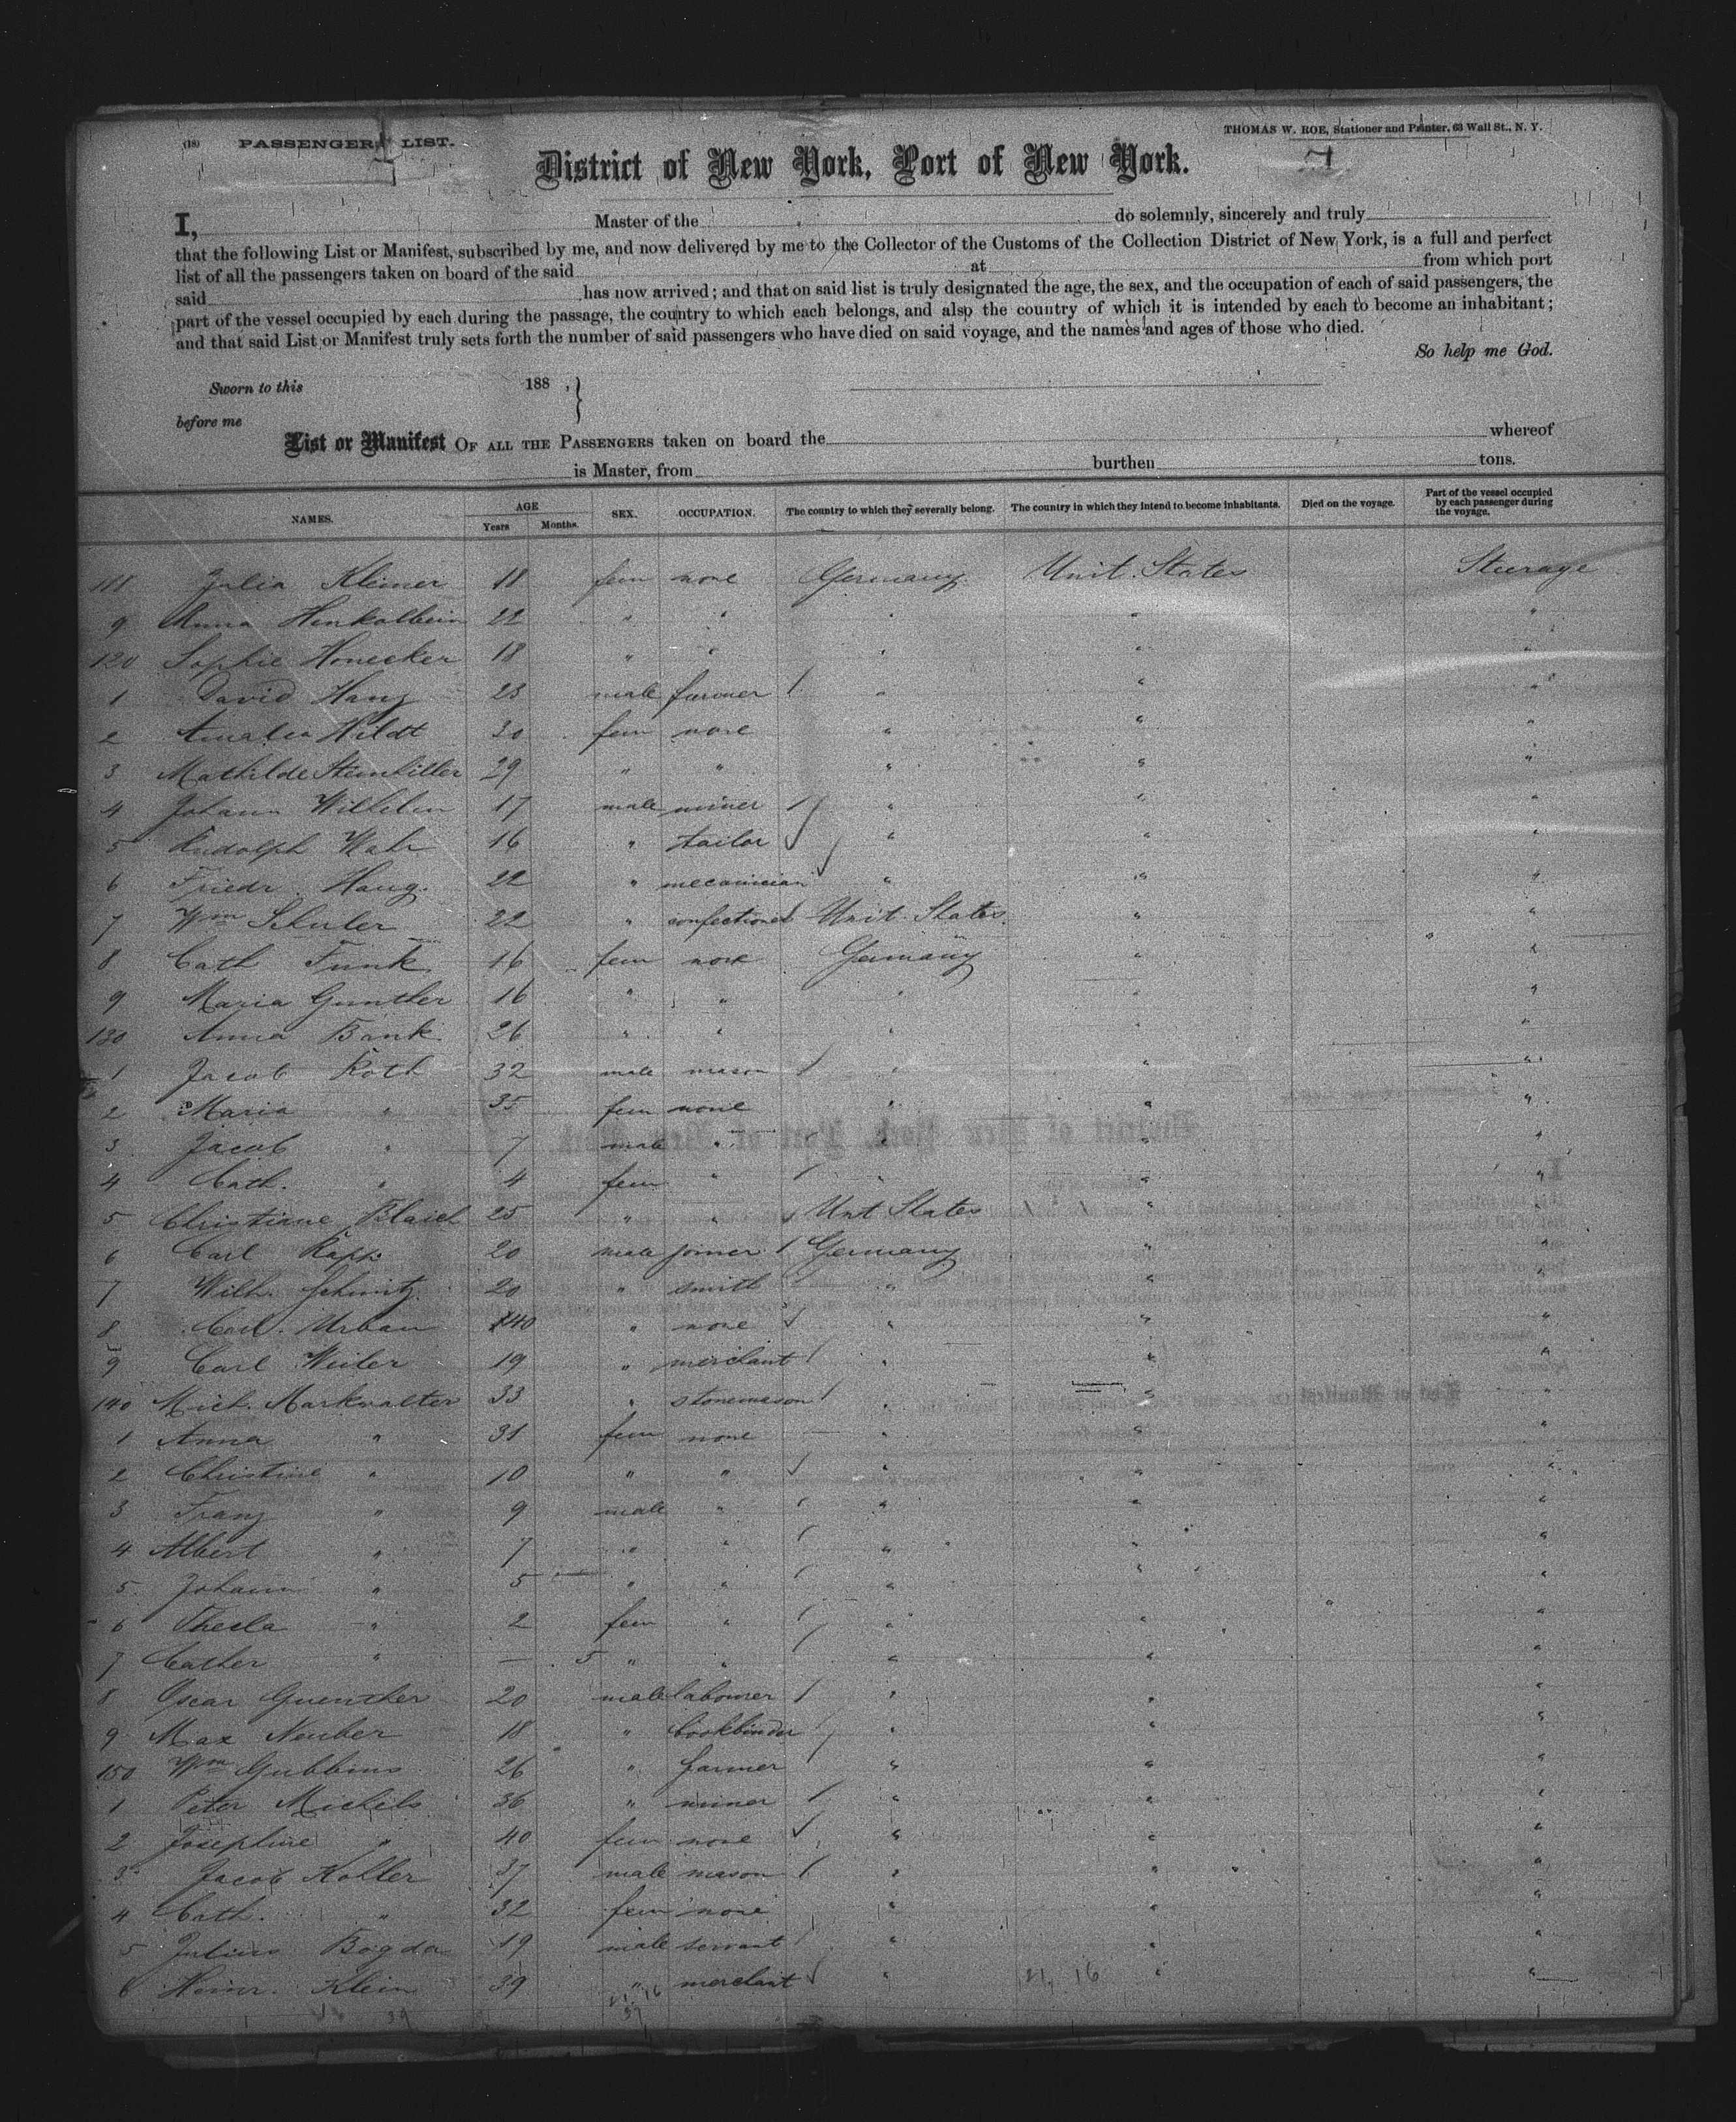 (18) PASSENGER LIST. THOMAS W. ROE, Stationer and Printer, 63 Wall St., N. Y.
District of New York, Port of New York. 7
I, Master of the do solemnly, sincerely and truly
that the following List or Manifest, subscribed by me, and now delivered by me to the Collector of the Customs of the Collection District of New York, is a full and perfect
list of all the passengers taken on board of the said at from which port
said has now arrived; and that on said list is truly designated the age, the sex, and the occupation of each of said passengers, the
part of the vessel occupied by each during the passage, the country to which each belongs, and also the country of which it is intended by each to become an inhabitant;
and that said List or Manifest truly sets forth the number of said passengers who have died on said voyage, and the names and ages of those who died.
So help me God.
Sworn to this 188 , }
before me
List or Manifest OF ALL THE PASSENGERS taken on board the whereof
is Master, from burthen tons.
NAMES. AGE Years Months. SEX. OCCUPATION. The country to which they severally belong. The country in which they intend to become inhabitants. Died on the voyage. Part of the vessel occupied by each passenger during the voyage.
118 Julia Kleiner 18 fem none Germany Unit. States Steerage
9 Anna Henkalbein 22 " " " " "
120 Sophie Honecker 18 " " " " "
1 David Hang 23 male farmer " " "
2 Amalia Hildt 30 fem none " " "
3 Mathilde Steinhiller 29 " " " " "
4 Johann Wilhelm 17 male miner " " "
5 Rudolph Wahr 16 " tailor " " "
6 Friedr. Haug 22 " mecanician " " "
7 Wm Schuler 22 " confectioner Unit. States " "
8 Cath Funk 16 fem none Germany " "
9 Maria Gunther 16 " " " " "
130 Anna Bank 26 " " " " "
1 Jacob Roth 32 male mason " " "
2 Maria " 35 fem none " " "
3 Jacob " 7 male " " " "
4 Cath. " 4 fem " " " "
5 Christiane Blaich 25 " " Unt States " "
6 Carl Rapp 20 male joiner Germany " "
7 Wilh. Schmitz 20 " smith " " "
8 Carl Urban 40 " none " " "
9 Carl Weiler 19 " merchant " " "
140 Mich. Markwalter 33 " stonemason " " "
1 Anna " 31 fem none " " "
2 Christine " 10 " " " " "
3 Franz " 9 male " " " "
4 Albert " 7 " " " " "
5 Johann " 5 " " " " "
6 Thecla " 2 fem " " " "
7 Cather " — 5 " " " " "
8 Oscar Guenther 20 male labourer " " "
9 Max Neuber 18 " bookbinder " " "
150 Wm Gubbins 26 " farmer " " "
1 Peter Michels 36 " miner " " "
2 Josephine " 40 fem none " " "
3 Jacob Koller 37 male mason " " "
4 Cath. " 32 fem none " " "
5 Julius Bogda 19 male servant " " "
6 Heinr. Klein 39 " merchant " 21 16 " "
39 21 16
39